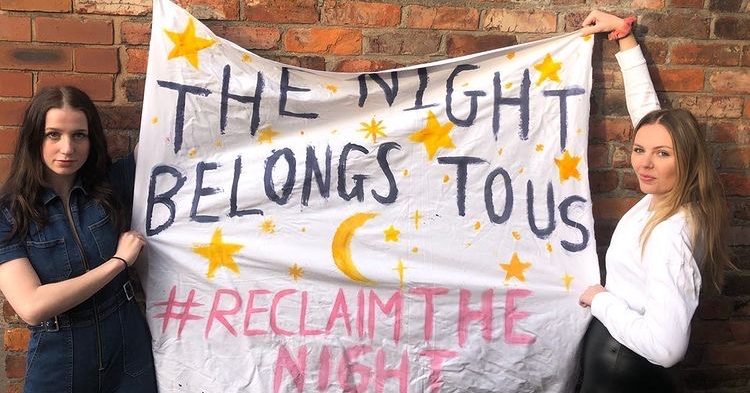 THE NIGHT
BELONGS TO US
#RECLAIM THE
NIGHT